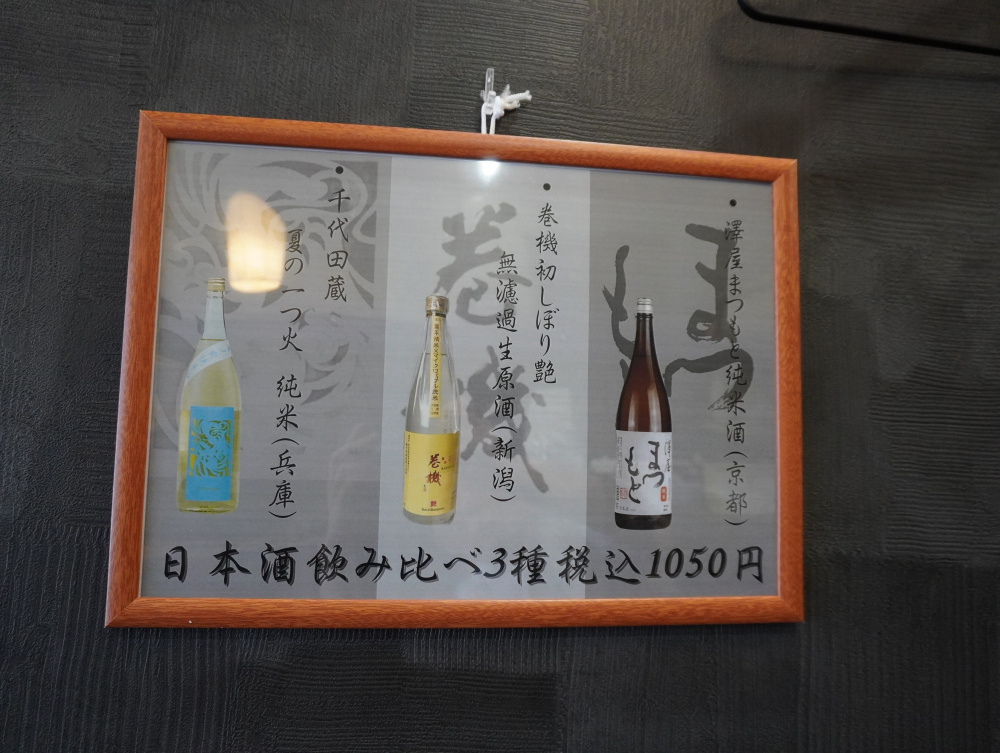 ・澤屋まつもと純米酒(京都)
・巻機初しぼり艶
無濾過生原酒(新潟)
・千代田蔵
夏の一つ火 純米(兵庫)
日本酒飲み比べ3種税込1050円
まつもと
巻機
澤屋
まつもと
巻機